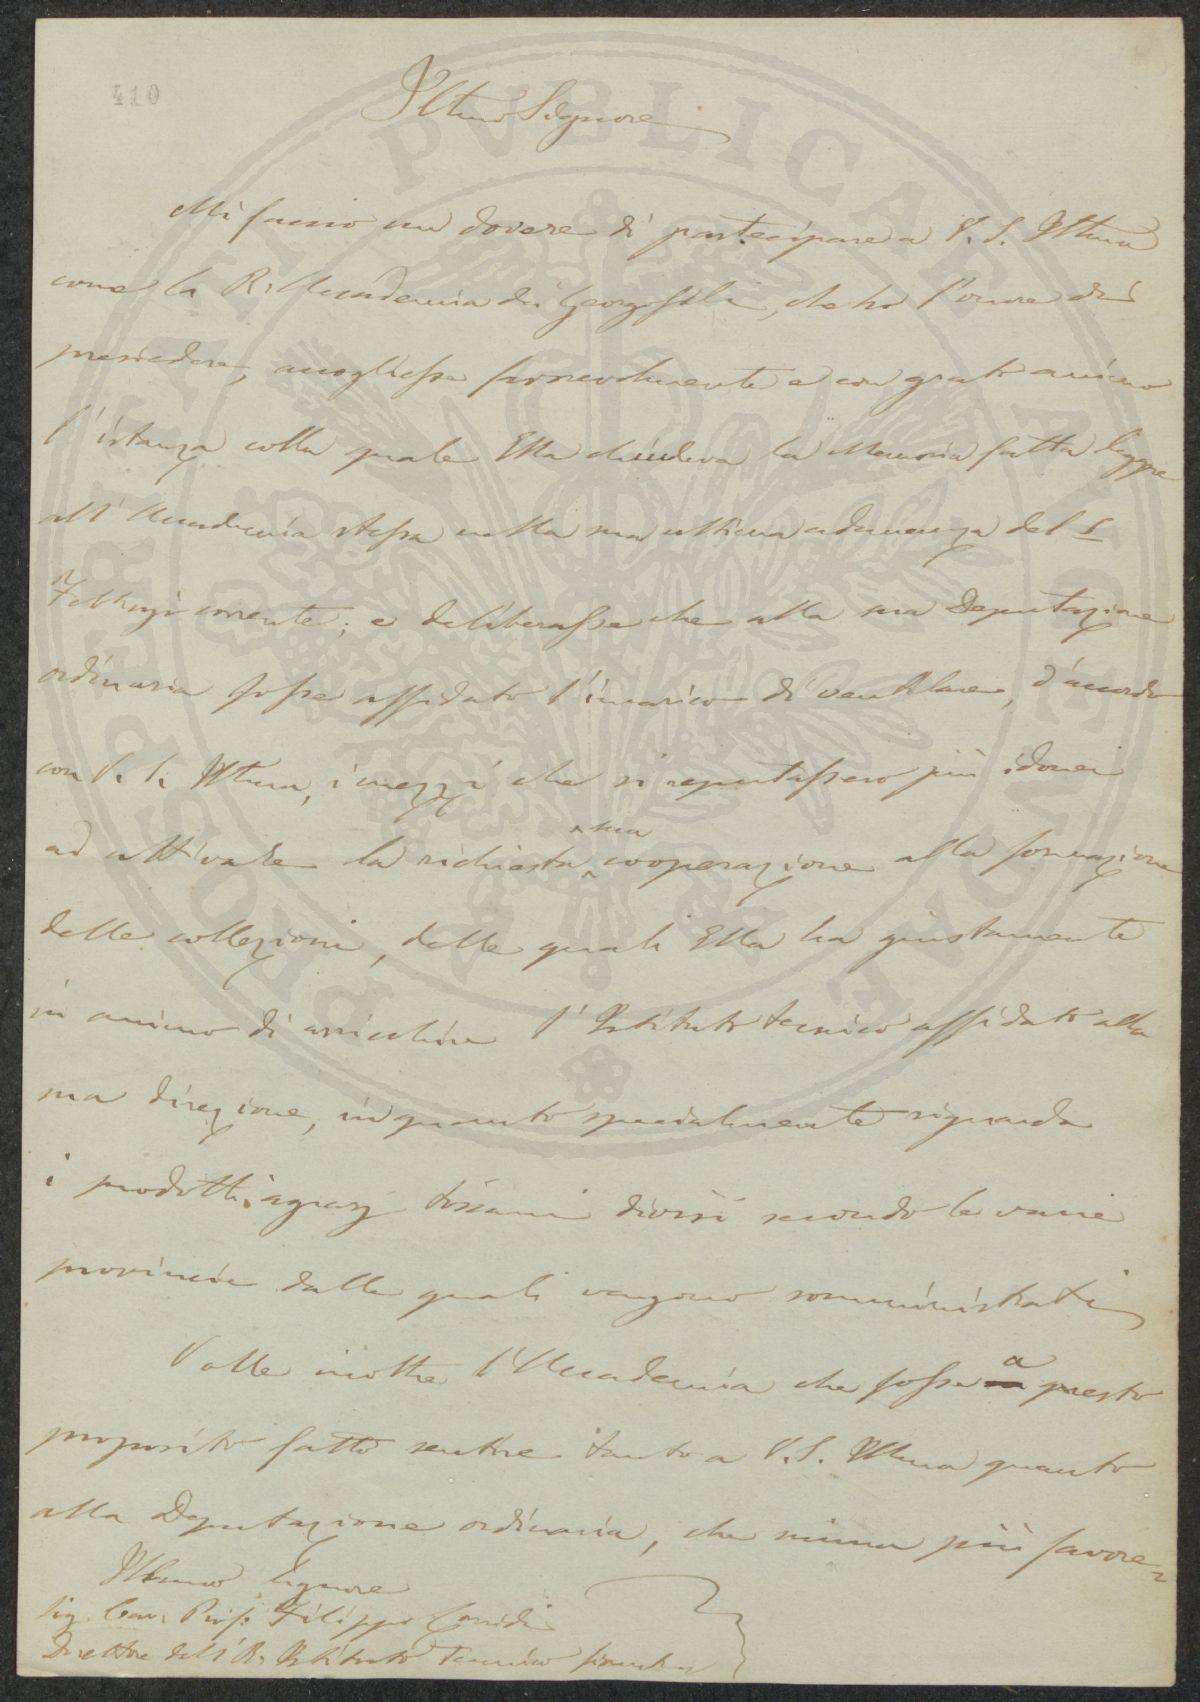 410
Illmo Signore
Mi faccio un dovere di partecipare a V. S. Illma
come la R. Accademia dei Georgofili, che ho l'onore di
presiedere, accogliesse favorevolmente e con grato animo
l'istanza colla quale Ella chiudeva la Memoria fatta leggere
all'Accademia stessa nella sua ultima adunanza del 5
Febbrajo corrente; e deliberasse che alla sua Deputazione
ordinaria fosse affidato l'incarico di ventilare, d'accordo
con V. S. Illma, i mezzi che si reputassero più idonei
ad attivare la richiesta sua cooperazione alla formazione
delle collezioni, delle quali Ella ha giustamente
in animo di arricchire l'Istituto tecnico affidato alla
sua direzione, in quanto specialmente riguarda
i prodotti agrarj toscani divisi secondo le varie
provincie dalle quali vengono somministrati
Volle inoltre l'Accademia che fosse a questo
proposito fatto sentire tanto a V. S. Illma quanto
alla Deputazione ordinaria, che niuna più favore=
Illmo Signore
Sig. Cav. Prof. Filippo Corridi
Direttore dell'I. R. Istituto Tecnico
PROSPERITATI PVBLICAE AVGENDAE